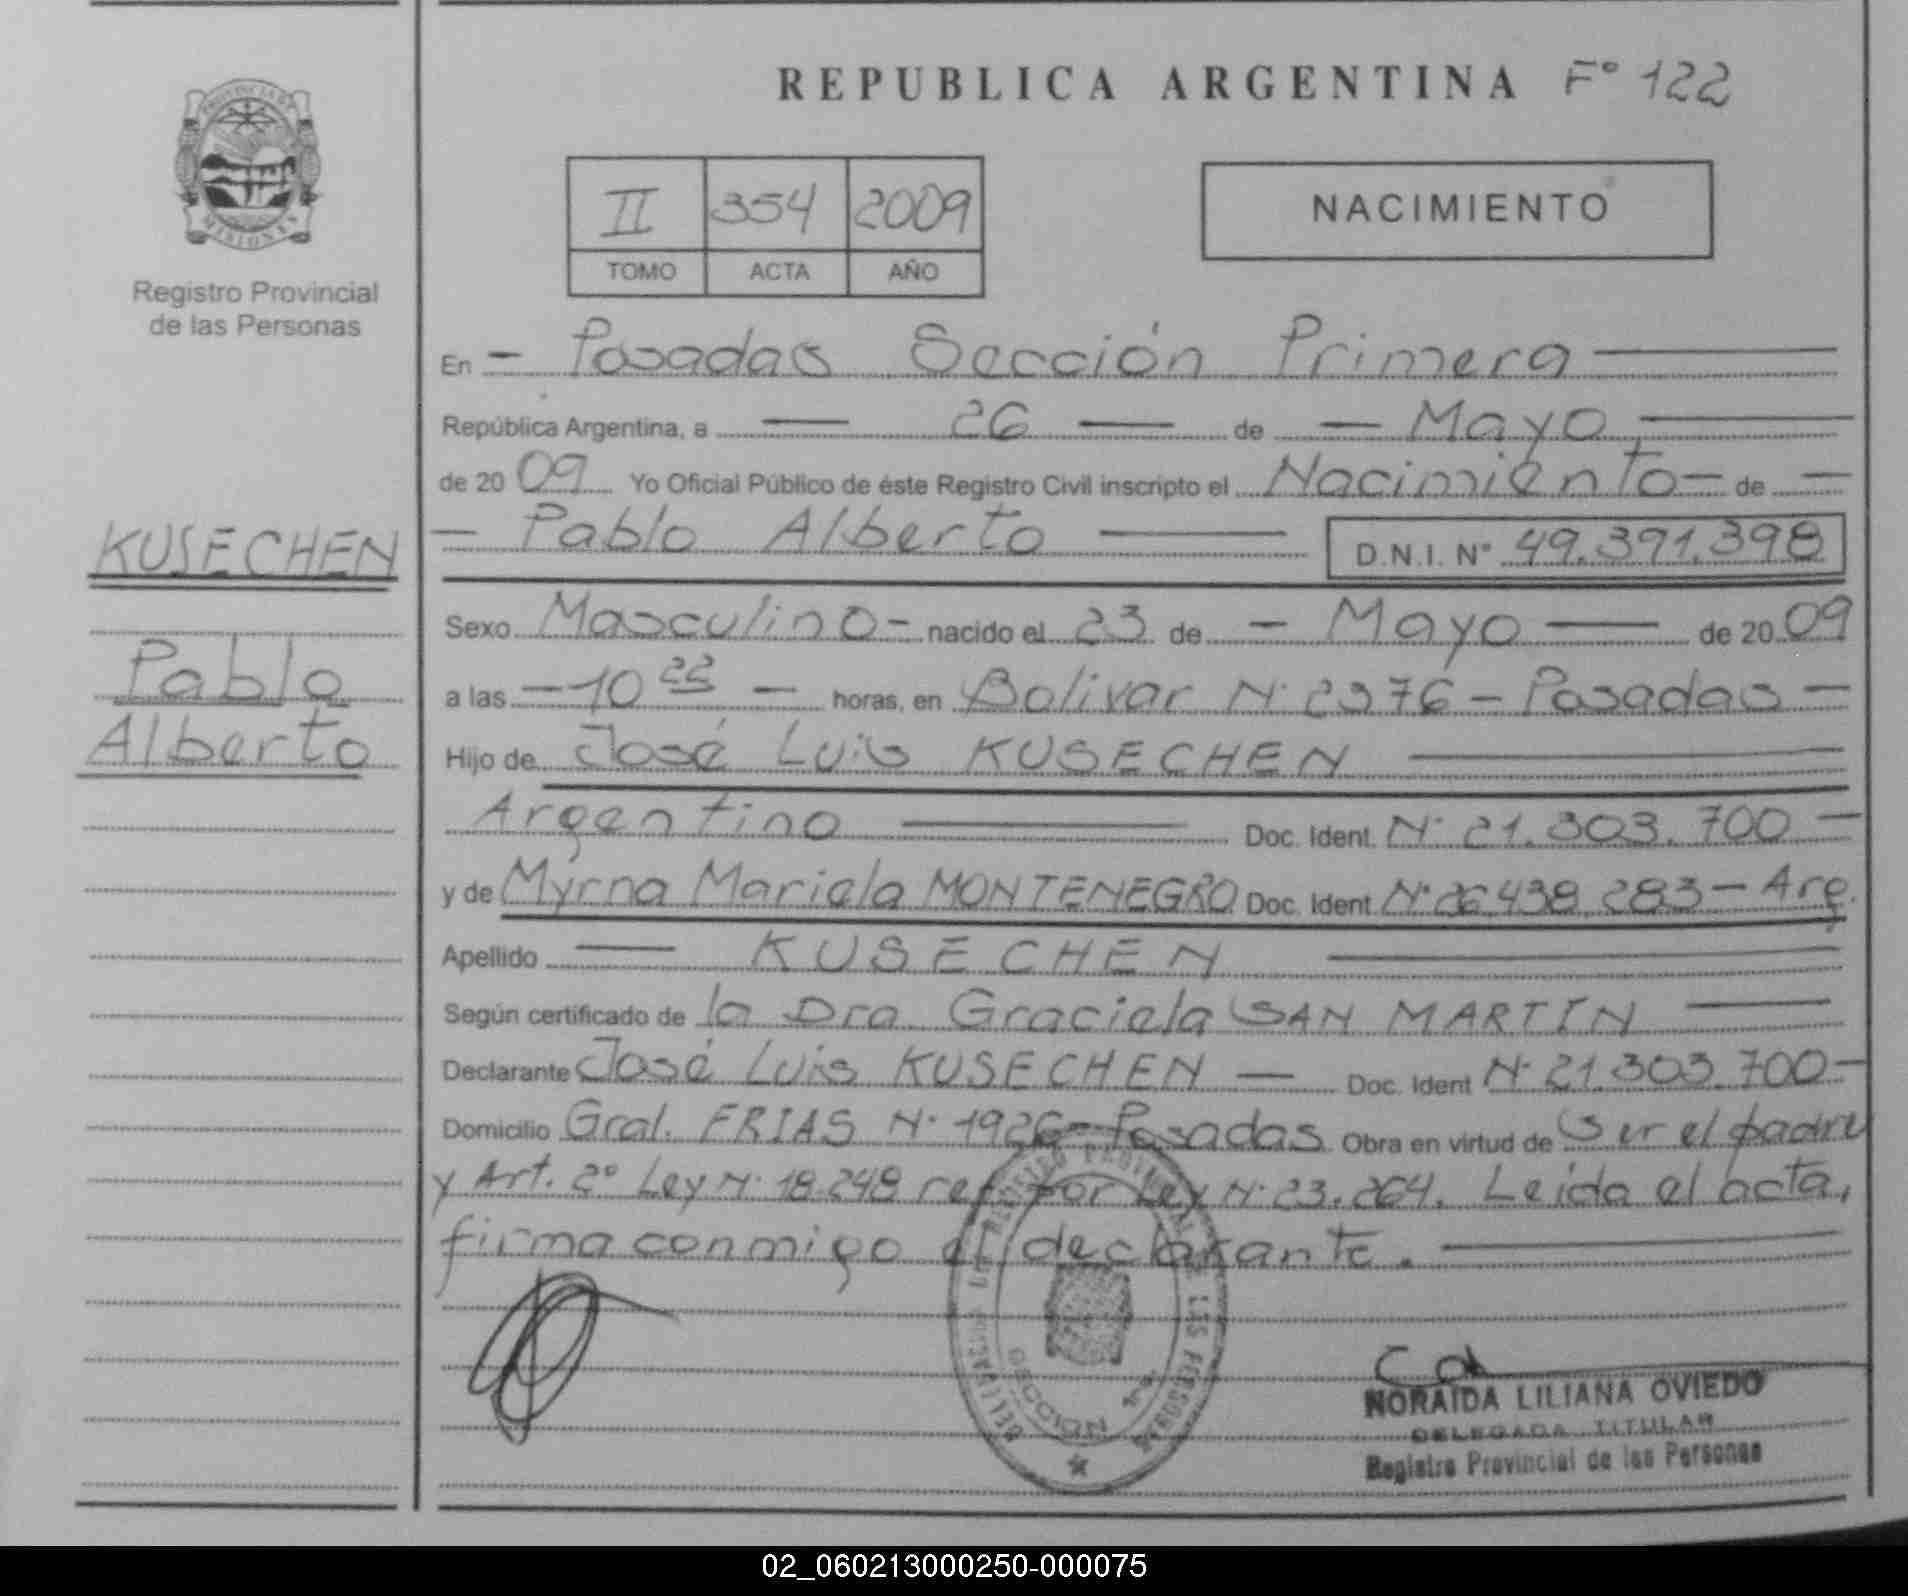 REPUBLICA ARGENTINA F° 122
PROVINCIA DE
MISIONES
Registro Provincial
de las Personas
II 354 2009
TOMO ACTA AÑO
NACIMIENTO
En - Posadas Sección Primera
República Argentina, a — 26 — de — Mayo
de 2009 Yo Oficial Público de éste Registro Civil inscripto el Nacimiento - de -
- Pablo Alberto — D.N.I. N° 49.391.398
KUSECHEN
Pablo
Alberto
Sexo Masculino - nacido el 23 de - Mayo — de 2009
a las - 10 22 - horas, en Bolivar N° 2376 - Posadas -
Hijo de José Luis KUSECHEN
Argentino — Doc. Ident. N° 21.303.700 -
y de Myrna Mariela MONTENEGRO Doc. Ident N° 26.438.283 - Arg.
Apellido — KUSECHEN
Según certificado de la Dra Graciela SAN MARTIN
Declarante José Luis KUSECHEN — Doc. Ident N° 21.303.700 -
Domicilio Gral. FRIAS N° 1926 - Posadas Obra en virtud de Ser el padre
y Art. 2° Ley N° 18.248 ref por Ley N° 23.264. Leida el acta,
firma conmigo el declarante.
REGISTRO PROVINCIAL DE LAS PERSONAS
SECCION 1ra
NORAIDA LILIANA OVIEDO
DELEGADA TITULAR
Registro Provincial de las Personas
02_060213000250-000075